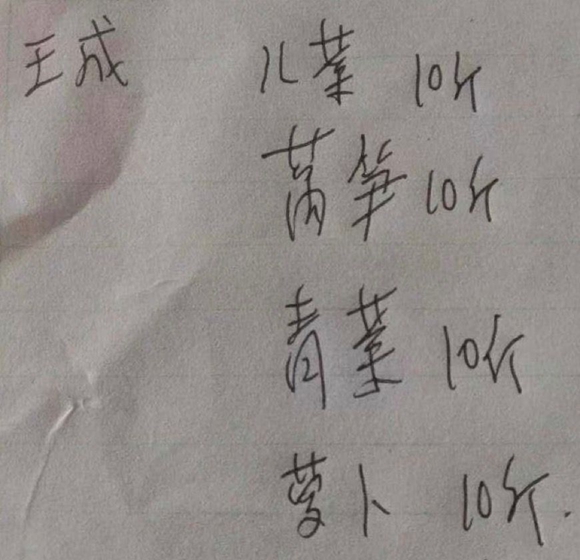 王成 儿菜 10斤
莴笋 10斤
青菜 10斤
萝卜 10斤.